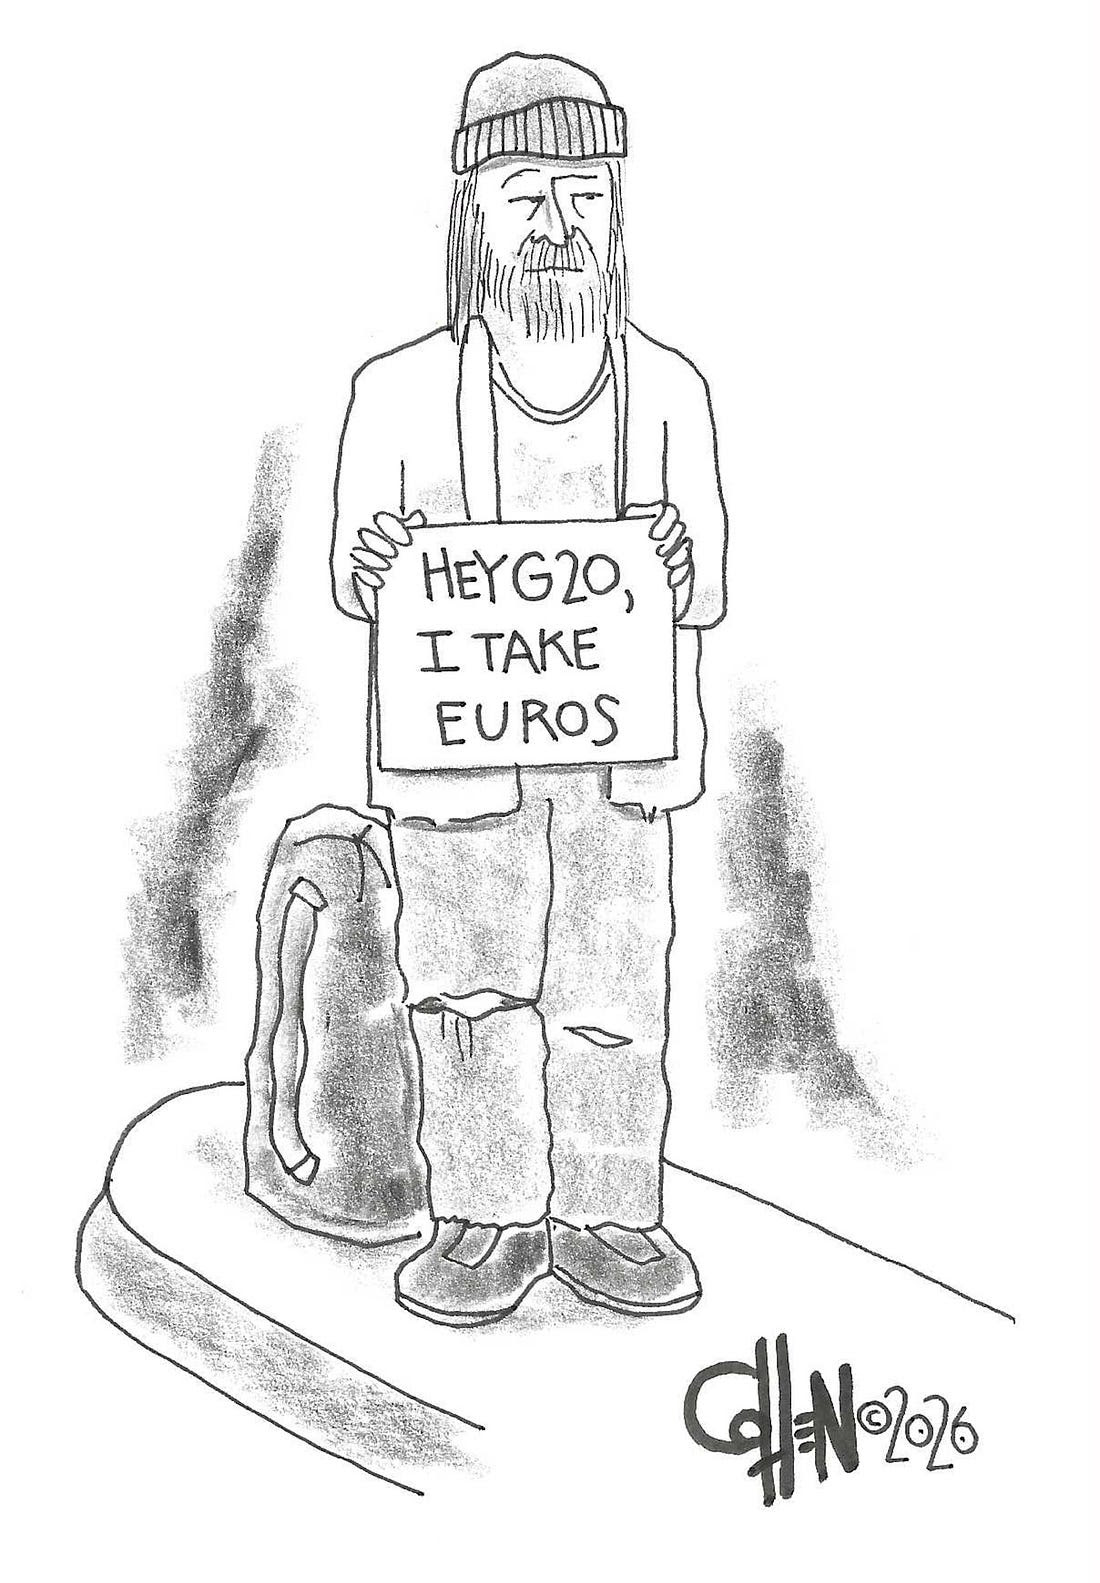 HEY G20,
I TAKE
EUROS
COHEN ©2026